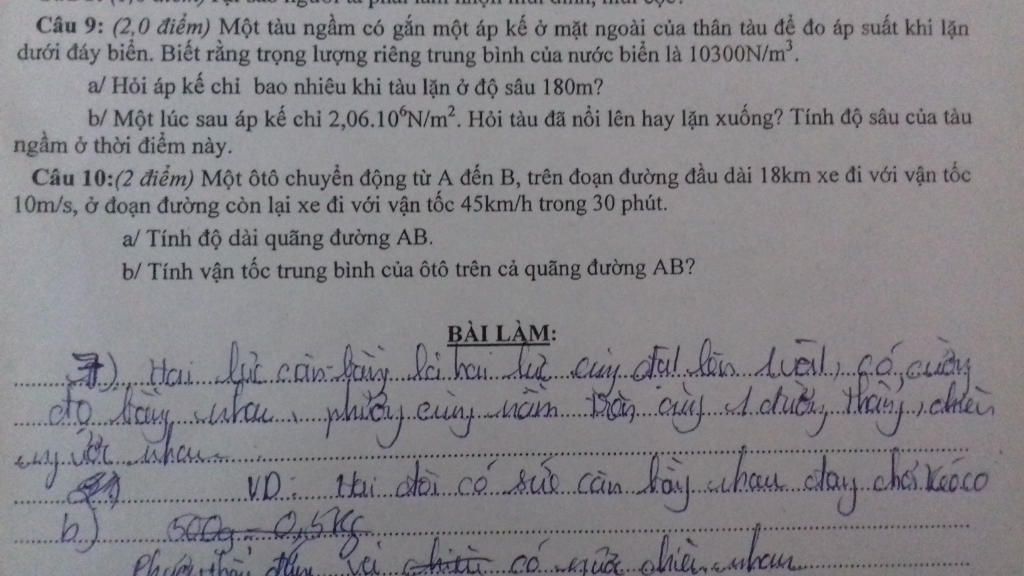 Câu 9: (2,0 điểm) Một tàu ngầm có gắn một áp kế ở mặt ngoài của thân tàu để đo áp suất khi lặn
dưới đáy biển. Biết rằng trọng lượng riêng trung bình của nước biển là 10300N/m³.
a/ Hỏi áp kế chỉ bao nhiêu khi tàu lặn ở độ sâu 180m?
b/ Một lúc sau áp kế chỉ 2,06.10⁶N/m². Hỏi tàu đã nổi lên hay lặn xuống? Tính độ sâu của tàu
ngầm ở thời điểm này.
Câu 10:(2 điểm) Một ôtô chuyển động từ A đến B, trên đoạn đường đầu dài 18km xe đi với vận tốc
10m/s, ở đoạn đường còn lại xe đi với vận tốc 45km/h trong 30 phút.
a/ Tính độ dài quãng đường AB.
b/ Tính vận tốc trung bình của ôtô trên cả quãng đường AB?
BÀI LÀM:
7) Hai lực cân bằng là hai lực cùng đặt lên 1 vật, có cường
độ bằng nhau, phương cùng nằm trên cùng 1 đường thẳng, chiều
ngược nhau.
VD: Hai đội có sức cân bằng nhau đang chơi kéo co
b) 500g = 0,5kg
có ngược chiều nhau